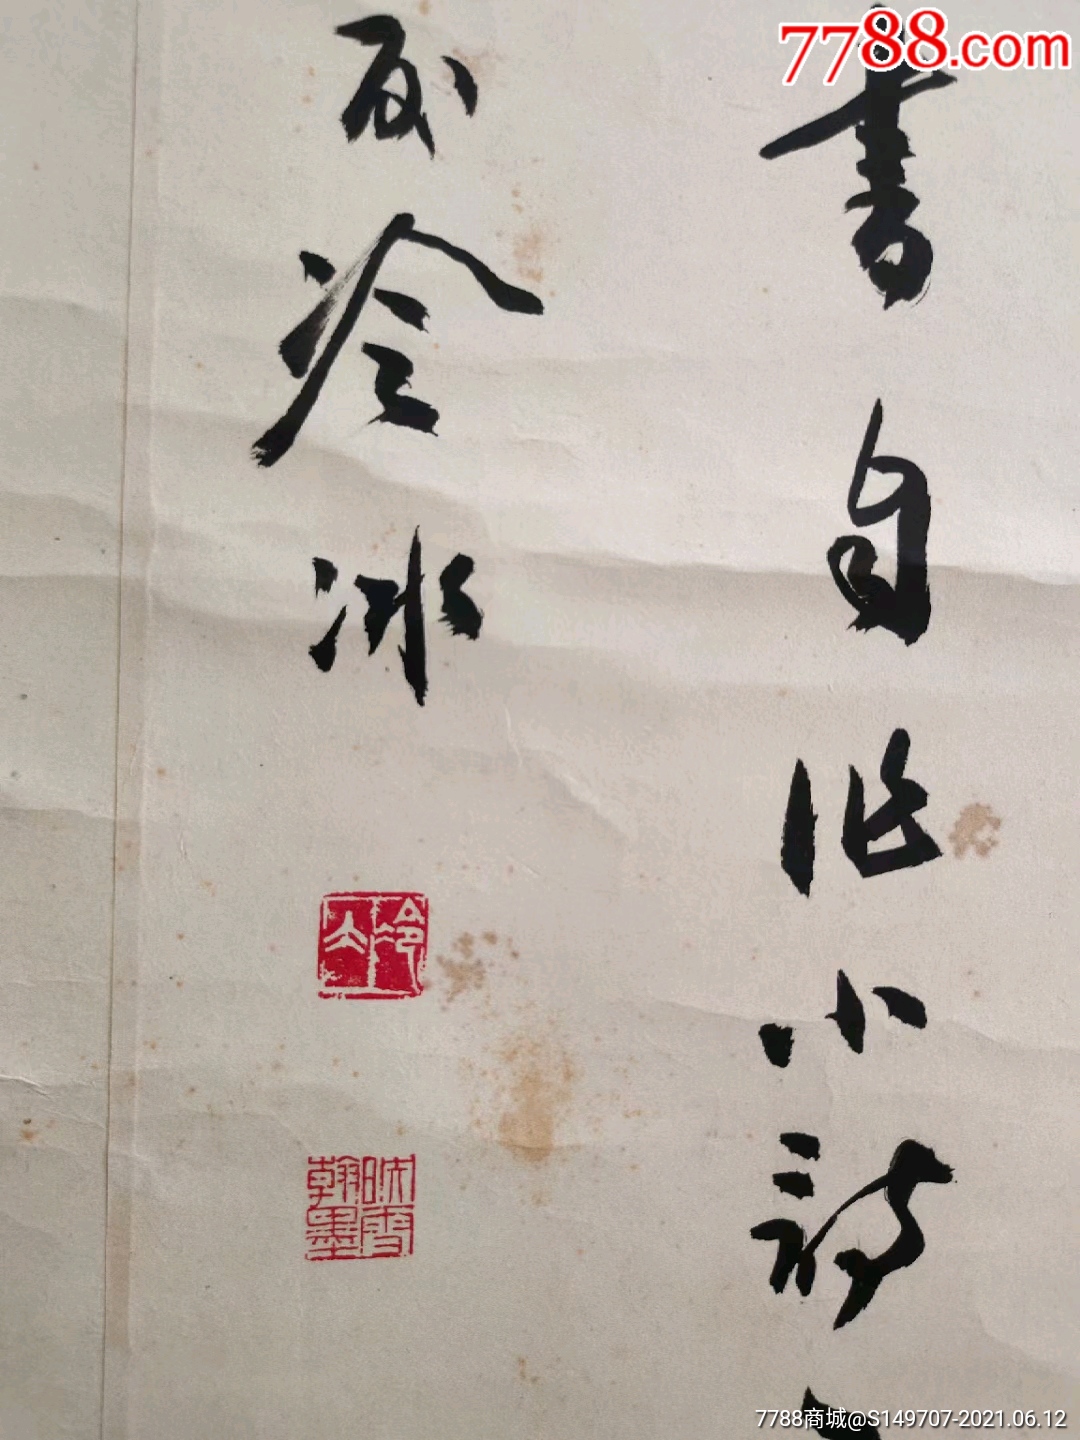 7788.com
书自作小诗
冷冰
冷冰
映雪
翰墨
7788商城@S149707-2021.06.12